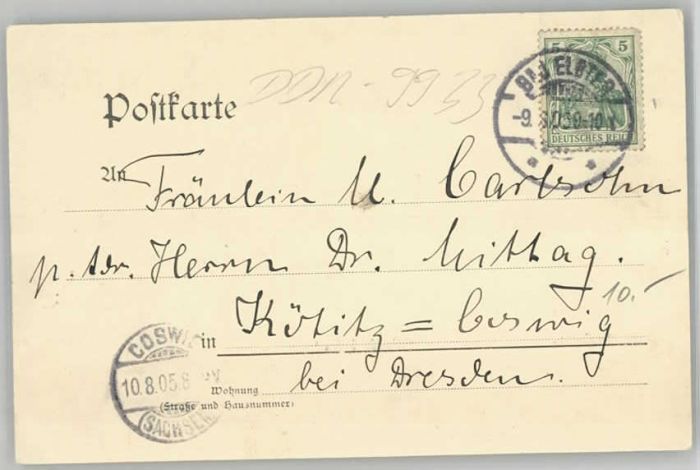 DDN-9933
Postkarte
5 5
BAD ELSTER
-9.8.05 9-10
DEUTSCHES REICH
An Fräulein M. Carlsohn
p. Adr. Herrn Dr. Mittag.
10.-
in Kötitz = Coswig
bei Dresden.
Wohnung
(Straße und Hausnummer)
COSWIG
10.8.05.8
(SACHSEN)